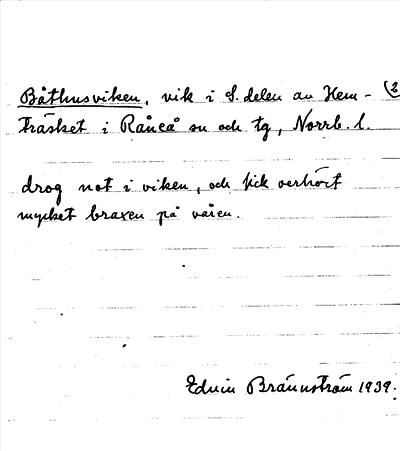 Båthusviken, vik i S. delen av Hem- (2
träsket i Råneå sn och tg, Norrb. l.
drog not i viken, och fick oerhört
mycket braxen på våren.
Edvin Brännström 1939.